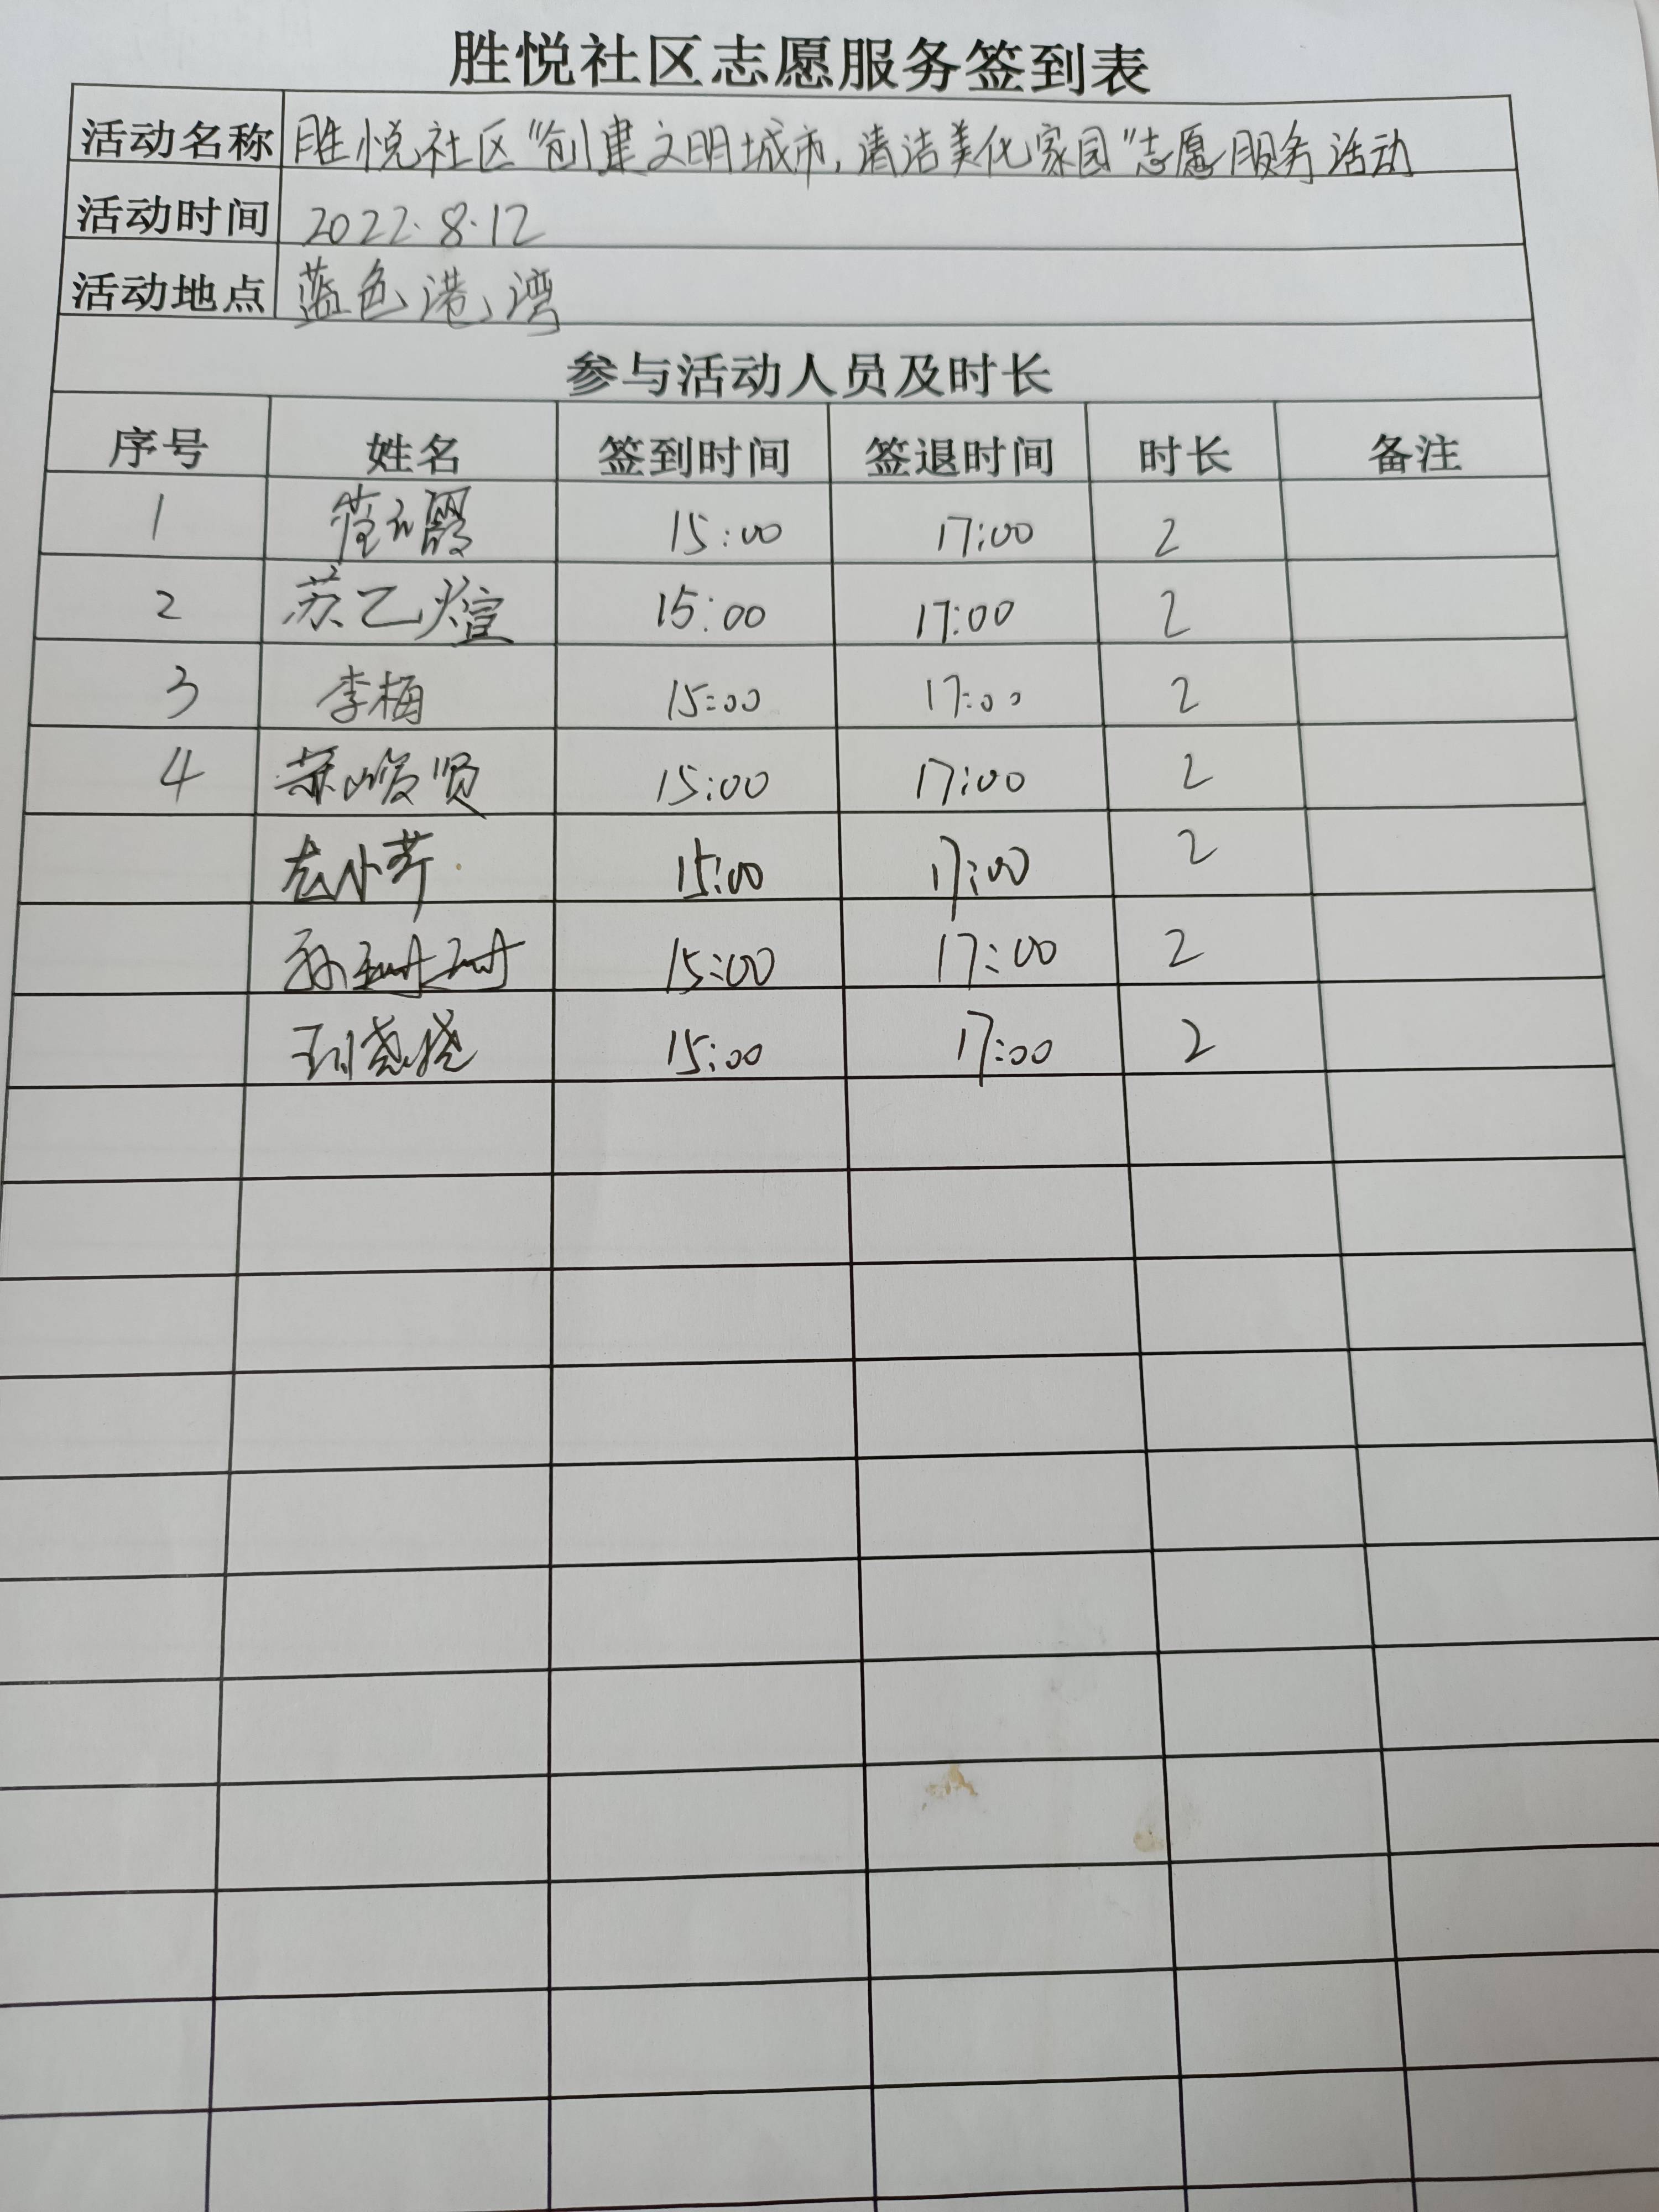 胜悦社区志愿服务签到表
活动名称 胜悦社区“创建文明城市,清洁美化家园”志愿服务活动
活动时间 2022.8.12
活动地点 蓝色港湾
参与活动人员及时长
序号 姓名 签到时间 签退时间 时长 备注
1 15:00 17:00 2
2 苏乙煊 15:00 17:00 2
3 李梅 15:00 17:00 2
4 15:00 17:00 2
15:00 17:00 2
15:00 17:00 2
15:00 17:00 2